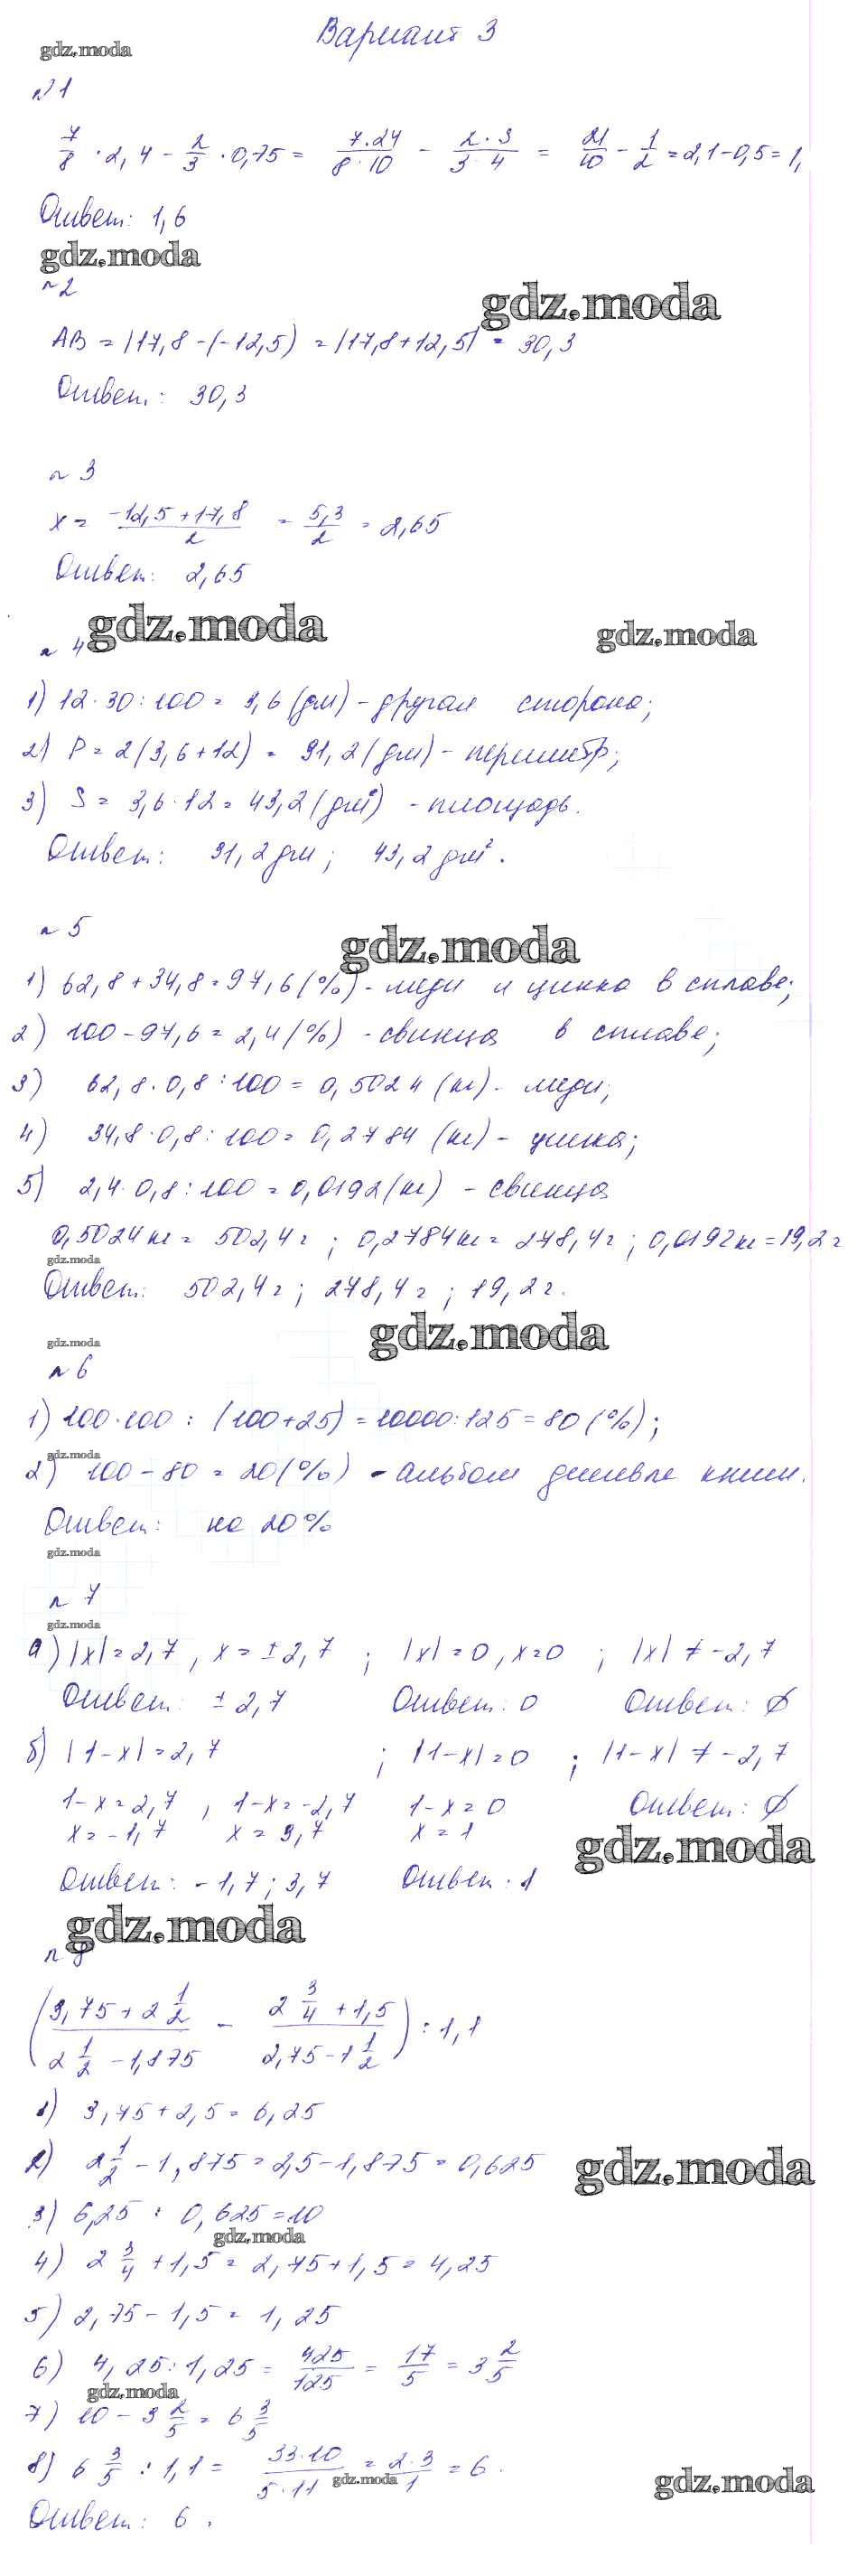 Вариант 3
gdz.moda
№1
7/8 · 2,4 - 2/3 · 0,75 = 7·24/8·10 - 2·3/3·4 = 21/10 - 1/2 = 2,1-0,5=1,
Ответ: 1,6
gdz.moda
№2
gdz.moda
AB = |17,8-(-12,5) = |17,8+12,5| = 30,3
Ответ: 30,3
№3
x = -12,5+17,8/2 = 5,3/2 = 2,65
Ответ: 2,65
gdz.moda
gdz.moda
№4
1) 12·30:100 = 3,6 (дм) - другая сторона;
2) P = 2(3,6+12) = 31,2 (дм) - периметр;
3) S = 3,6·12 = 43,2 (дм²) - площадь.
Ответ: 31,2 дм; 43,2 дм².
№5
gdz.moda
1) 62,8+34,8=97,6(%) - меди и цинка в сплаве;
2) 100-97,6=2,4(%) - свинца в сплаве;
3) 62,8·0,8:100=0,5024 (кг) - меди;
4) 34,8·0,8:100=0,2784 (кг) - цинка;
5) 2,4·0,8:100=0,0192(кг) - свинца
0,5024кг = 502,4г; 0,2784кг = 278,4г; 0,0192кг=19,2г
gdz.moda
Ответ: 502,4г; 278,4г; 19,2г.
gdz.moda
gdz.moda
№6
1) 100·100 : (100+25) = 10000:125 = 80(%);
gdz.moda
2) 100-80=20(%) - альбом дешевле книги.
Ответ: на 20%
gdz.moda
№7
gdz.moda
а) |x|=2,7, x=±2,7; |x|=0, x=0; |x| ≠ -2,7
Ответ: ±2,7 Ответ: 0 Ответ: ∅
б) |1-x|=2,7; |1-x|=0; |1-x| ≠ -2,7
1-x=2,7, 1-x=-2,7 1-x=0 Ответ: ∅
x=-1,7 x=3,7 x=1
gdz.moda
Ответ: -1,7; 3,7 Ответ: 1
gdz.moda
№8
(3,75+2 1/2 / 2 1/2 - 1,875 - 2 3/4 + 1,5 / 2,75-1 1/2) : 1,1
1) 3,75+2,5=6,25
2) 2 1/2 - 1,875=2,5-1,875=0,625
gdz.moda
3) 6,25 : 0,625=10
gdz.moda
4) 2 3/4 + 1,5 = 2,75+1,5=4,25
5) 2,75-1,5=1,25
6) 4,25:1,25 = 425/125 = 17/5 = 3 2/5
gdz.moda
7) 10 - 3 2/5 = 6 3/5
8) 6 3/5 : 1,1 = 33·10/5·11 = 2·3/1 = 6.
gdz.moda
gdz.moda
Ответ: 6.